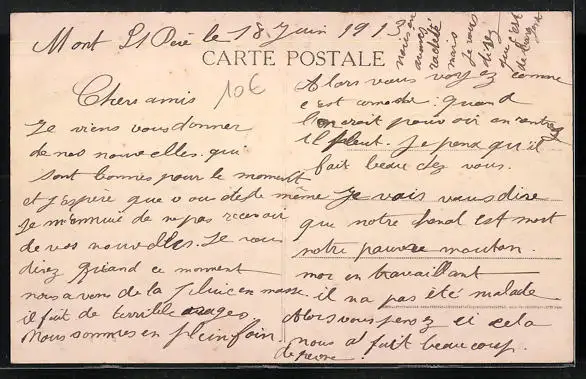 Mont St Père le 18 Juin 1913
CARTE POSTALE
10€
Chers amis
Je viens vous donner
de nos nouvelles. qui
sont bonnes pour le moment
et j'espère que vous de même
Je m'ennuie de ne pas recevoir
de vos nouvelles. Je vous
direz quand ce moment
nous avons de la pluie en masse
il fait de terrible orages
Nous sommes en plein foin.
Alors vous voyez comme
c'est : quand
l'on croit pouvoir en rentrez
il pleut. Je pense qu'il
fait beau chez vous.
Je vais vous dire
que notre cheval est mort
notre pauvre mouton.
mor en travaillant
il na pas été malade
Alors vous pensez si cela
nous a fait beaucoup.
de peine.
nous en
avons
racheté
mais
je vous
direz
que c'est